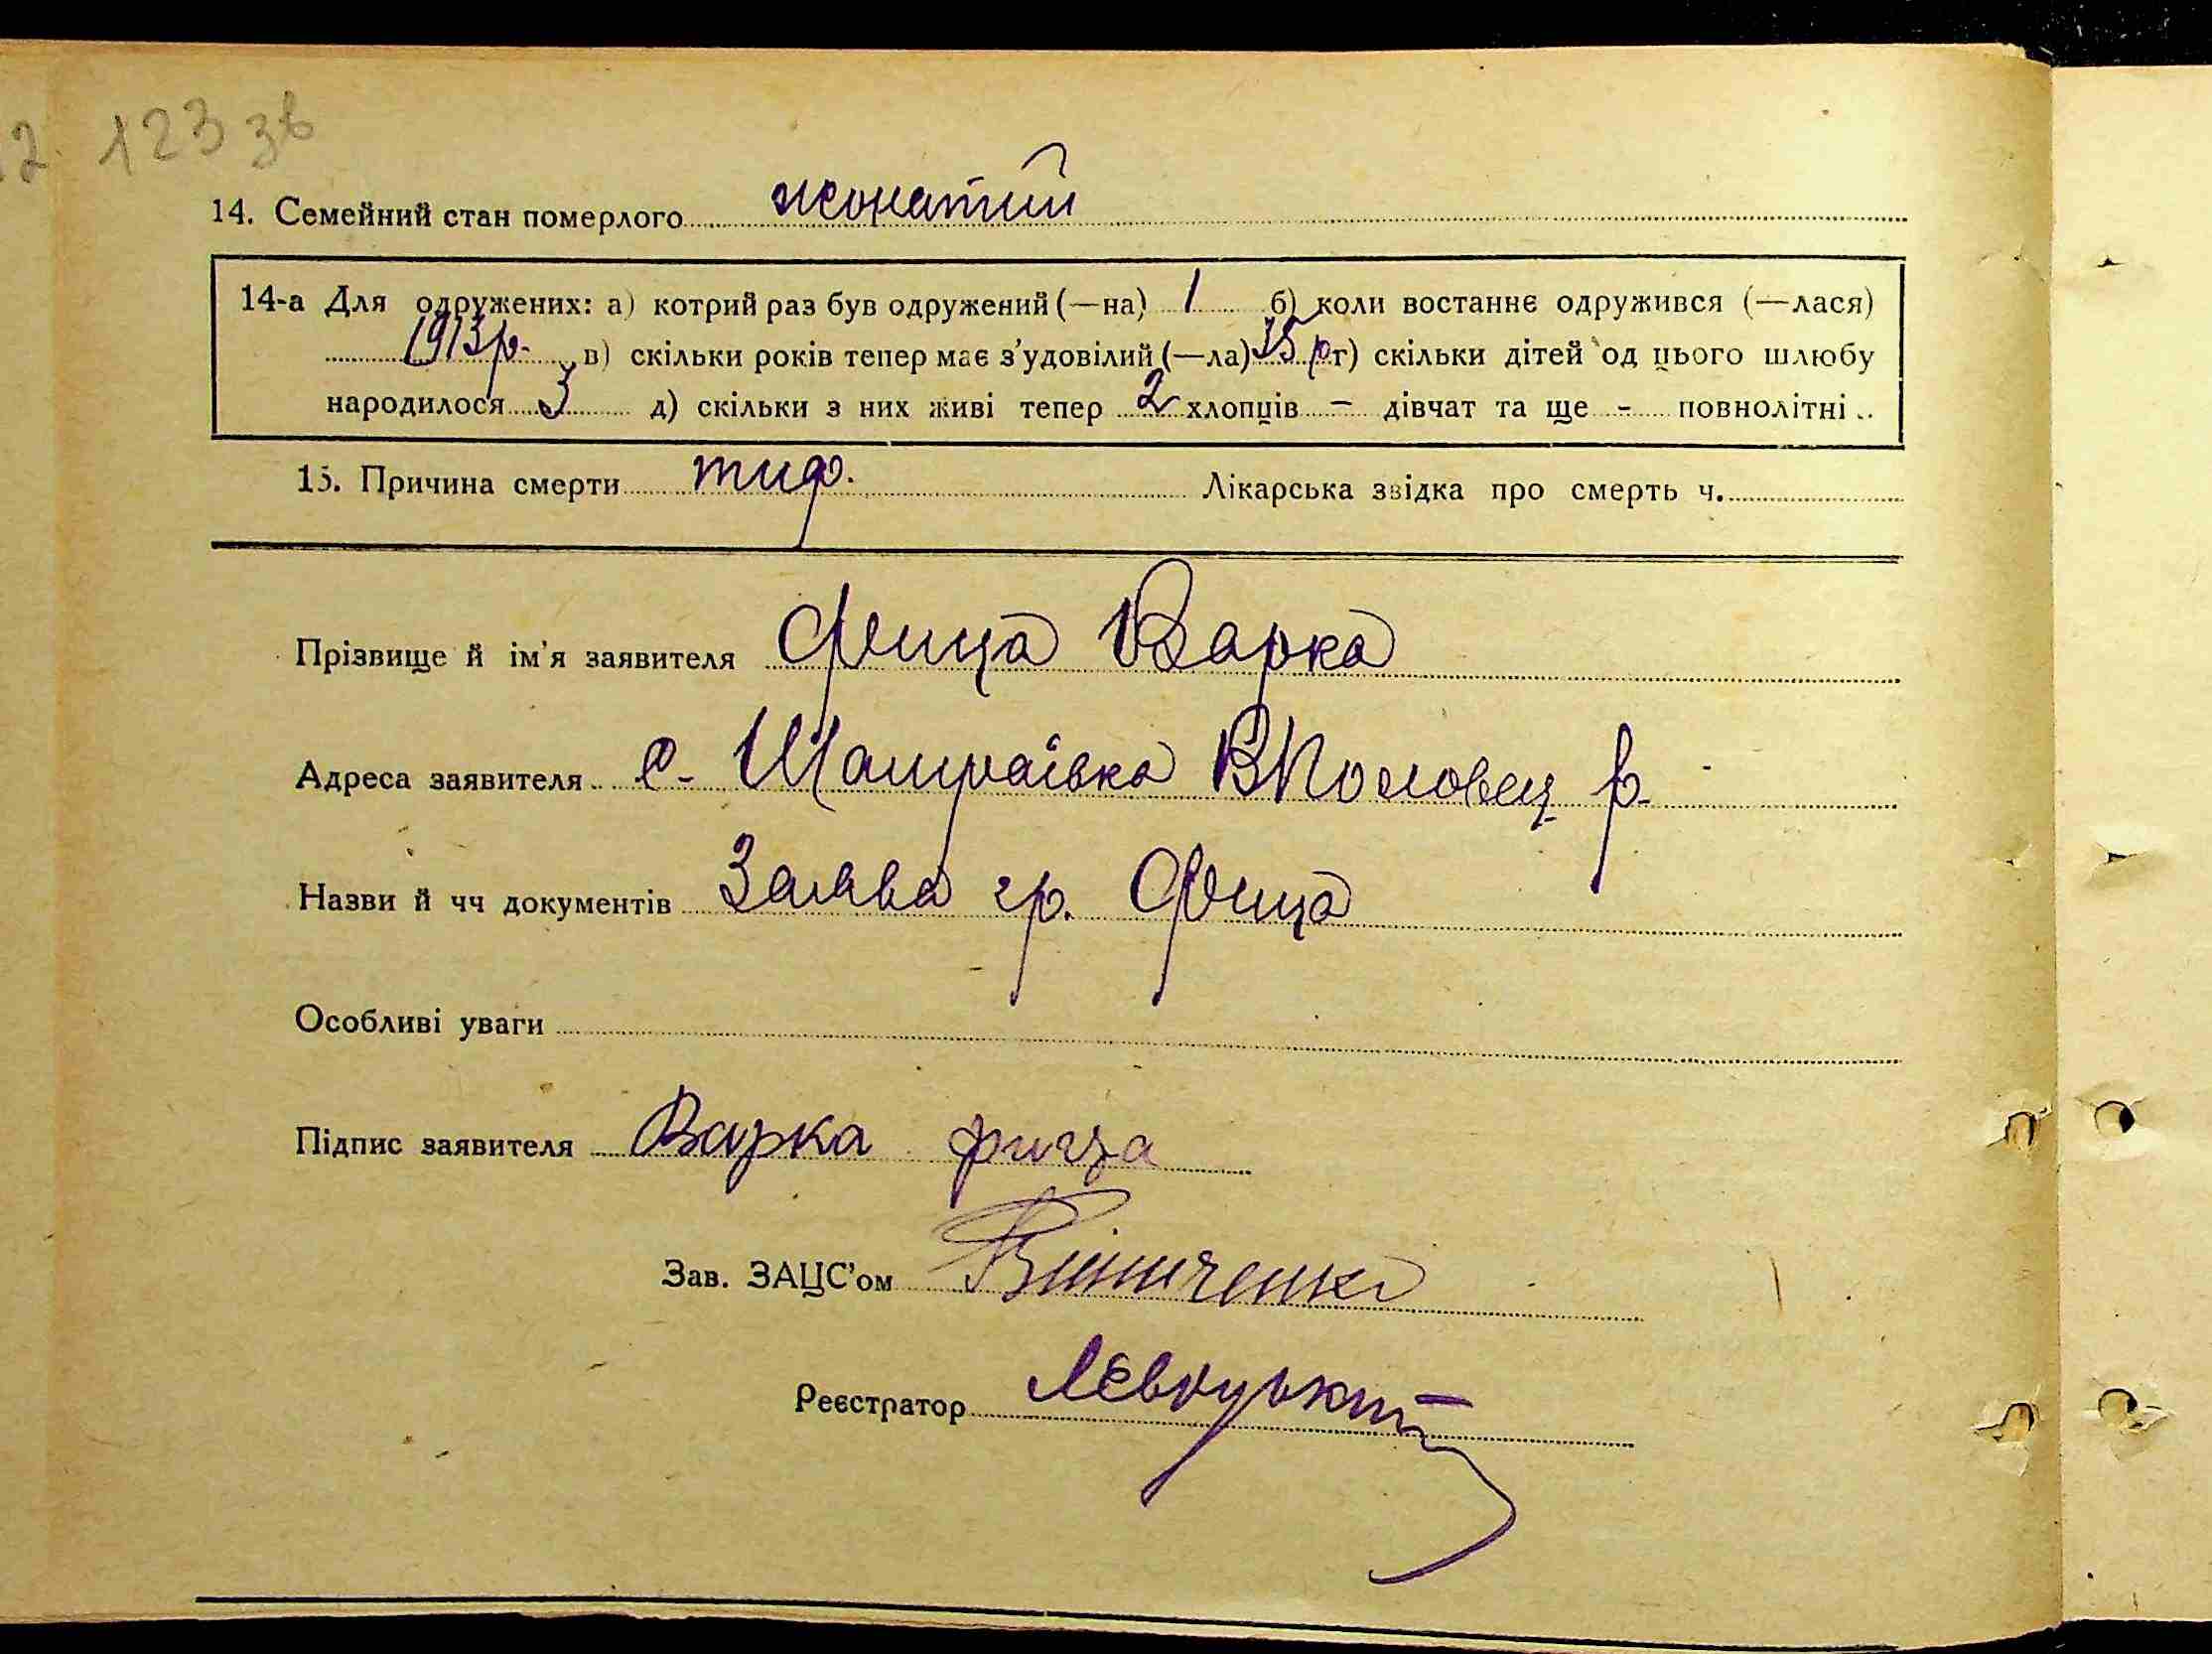 123 зв
14. Семейний стан померлого жонатий
14-а Для одружених: а) котрий раз був одружений (—на) 1 б) коли востаннє одружився (—лася)
1913р. в) скільки років тепер має з'удовілий (—ла) 35 р. г) скільки дітей од цього шлюбу
народилося 3 д) скільки з них живі тепер 2 хлопців - дівчат та ще - повнолітні..
15. Причина смерти тиф. Лікарська звідка про смерть ч.
Прізвище й ім'я заявителя Фица Варка
Адреса заявителя с. Шамраївка ВПоловец. р.
Назви й чч документів Заява гр. Фица
Особливі уваги
Підпис заявителя Варка фица
Зав. ЗАЦС'ом Вініченко
Реєстратор